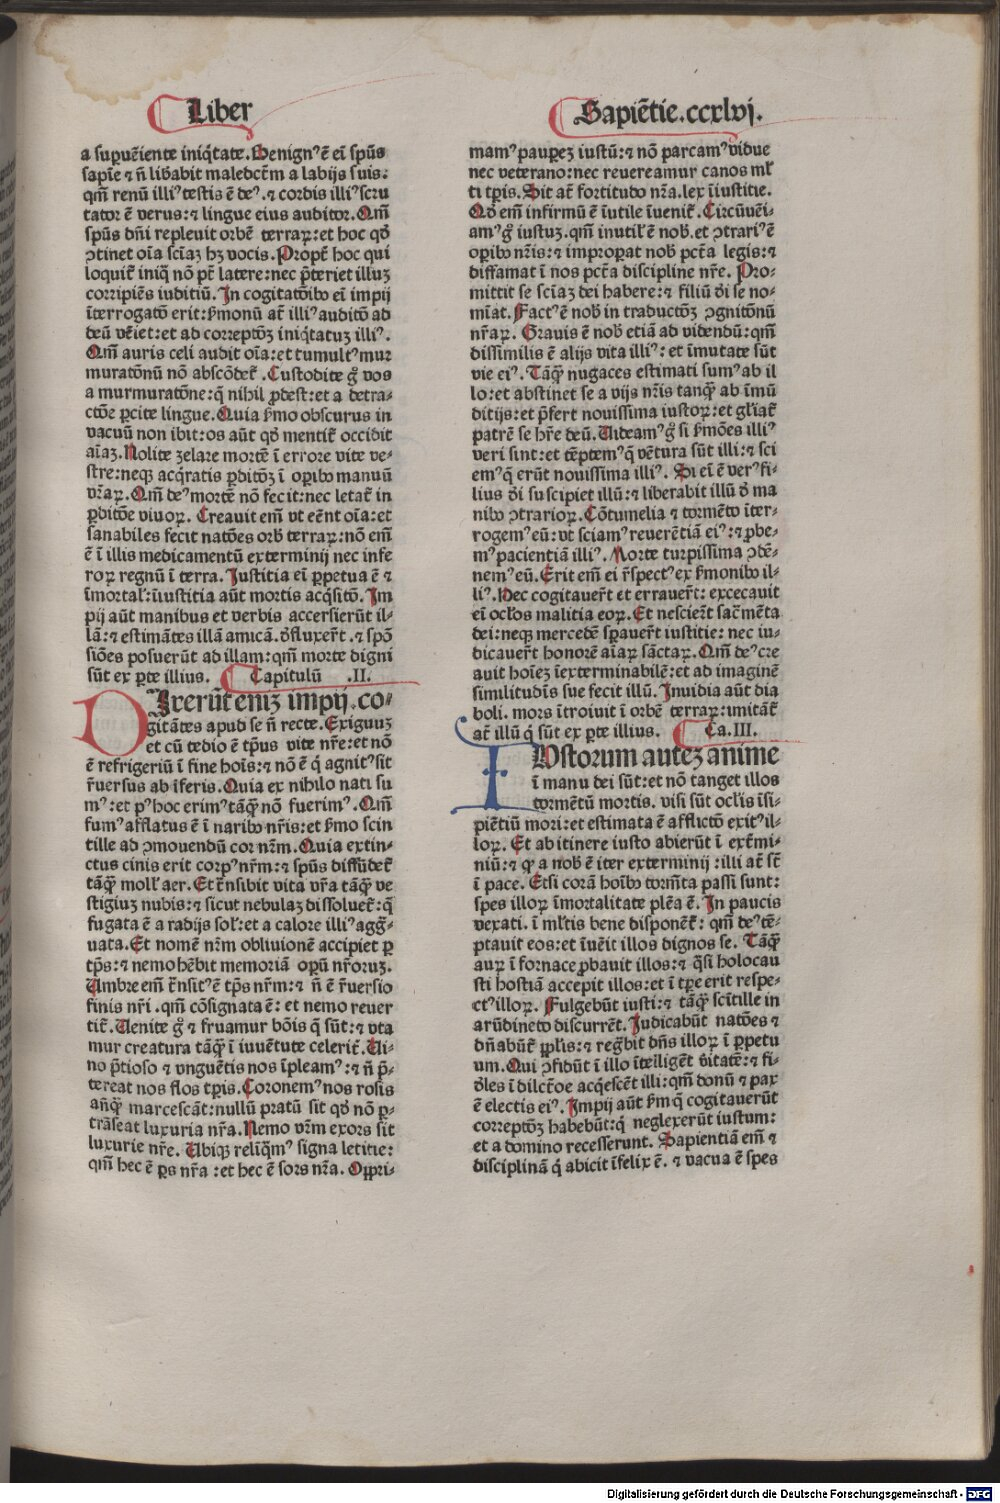 Liber
Sapiētie.ccxlvj.
a supueniente iniq̄tate. Benignꝰ ē ei᷒ sp̄us
sapiē ⁊ n̄ lib̓abit maledct̄m a labijs suis:
qm̄ renū illiꝰ testis ē deꝰ. ⁊ cordis illiꝰ scru
tator ē verus: ⁊ lingue eius auditor. Qm̄
sp̄us dn̄i repleuit orbē terraꝝ: et hoc qd̓
ꝯtinet oīa sciaꝫ hꝫ vocis. Propt̓ hoc qui
loquit̓ iniq̄ nō pt̄ latere: nec p̄teriet illuꝫ
corripiēs iuditiū. In cogitatōibꝰ eī impij
īterrogatō erit: ẜmonū at̄ illiꝰ auditō ad
deū vēiet: et ad correptōꝫ iniq̄tatuꝫ illiꝰ.
Qm̄ auris celi audit oīa: et tumultꝰ mur
muratōnū nō abscōdet̓. Custodite gͦ vos
a murmuratōne: q̄ nihil ꝓdest: et a detra-
ctōe ꝑcite lingue. Quia ẜmo obscurus in
vacuū non ibit: os aūt qd̓ mentit̓ occidit
aīaꝫ. Nolite zelare mortē ī errore vite ve-
stre: neqꝫ acq̄ratis ꝑditōꝫ ī oꝑibꝰ manuū
vr̄aꝝ. Qm̄ deꝰ mortē nō fecit: nec letat̓ in
ꝑditōe viuoꝝ. Creauit em̄ vt eēnt oīa: et
sanabiles fecit natōes orb̓ terraꝝ: nō em̄
ē ī illis medicamentū exterminij nec infe
roꝝ regnū ī terra. Justitia ei᷒ ꝑpetua ē ⁊
īmortal̓: īiustitia aūt mortis acq̄sitō. Im
pij aūt manibus et verbis accersierūt il-
lā: ⁊ estimātes illā amicā. defluxer̄t. ⁊ spō
siōes posuerūt ad illam: qm̄ morte digni
sūt ex ꝑte illius. Capitulū .II.
DIxerūt eniꝫ impij. co-
gitātes apud se n̄ recte. Exiguuꝫ
et cū tedio ē tp̄us vite nr̄e: et nō
ē refrigeriū ī fine hoīs: ⁊ nō ē q̄ agnitꝰ sit
r̓uersus ab īferis. Quia ex nihilo nati su
mꝰ: et pꝰ hoc erimꝰ tāq̄ꝫ nō fuerimꝰ. Qm̄
fumꝰ afflatus ē ī naribꝰ nr̄is: et ẜmo scin
tille ad ꝯmouendū cor nr̄m. Quia extin-
ctus cinis erit corpꝰ nr̄m: ⁊ sp̄us diffūdet̓
tāq̄ꝫ moll̓ aer. Et tr̄nsibit vita nr̄a tāq̄ꝫ ve
stigiuꝫ nubis: ⁊ sicut nebulaꝫ dissoluet̓: q̄
fugata ē a radijs sol̓: et a calore illiꝰ agg̓-
uata. Et nomē nr̄m obliuionē accipiet ꝑ
tp̄s: ⁊ nemo hēbit memoriā oꝑū nr̄oruꝫ.
Umbre em̄ tr̄nsitꝰ ē tp̄s nr̄m: ⁊ n̄ ē r̓uersio
finis nr̄i. qm̄ cōsignata ē: et nemo reuer
tit̓. Uenite gͦ ⁊ fruamur bōis q̄ sūt: ⁊ vta
mur creatura tāq̄ꝫ ī iuuētute celerit̓. Ui-
no p̄tioso ⁊ vnguētis nos īpleamꝰ: ⁊ n̄ p̄-
tereat nos flos tp̄is. Coronemꝰ nos rosis
añq̄ꝫ marcescāt: nullū pratū sit qd̓ nō ꝑ-
trāseat luxuria nr̄a. Nemo vr̄m exors sit
luxurie nr̄e. Ubiqꝫ reliq̄mꝰ signa letitie:
qm̄ hec ē ꝑs nr̄a: et hec ē sors nr̄a. Oppri-
mamꝰ pauꝑeꝫ iustū: ⁊ nō parcamꝰ vidue
nec veterano: nec reuereamur canos ml̓
ti tp̄is. Sit at̄ fortitudo nr̄a. lex īiustitie.
Qd̓ em̄ infirmū ē īutile īuenit̓. Circūuēi-
amꝰ gͦ iustuꝫ. qm̄ inutil̓ ē nob̓. et ꝯtrariꝰ ē
oꝑibꝰ nr̄is: ⁊ improꝑat nob̓ pct̄a legis: ⁊
diffamat ī nos pct̄a discipline nr̄e. Pro-
mittit se sciaꝫ dei habere: ⁊ filiū dei se no-
mīat. Factꝰ ē nob̓ in traductōꝫ ꝯgnitōnū
nr̄aꝝ. Grauis ē nob̓ etiā ad videndū: qm̄
dissimilis ē alijs vita illiꝰ: et īmutate sūt
vie eiꝰ. Tāq̄ꝫ nugaces estimati sumꝰ ab il
lo: et abstinet se a vijs nr̄is tanq̄ꝫ ab īmū
ditijs: et p̄fert nouissima iustoꝝ: et gl̓iat̓
patrē se hr̄e deū. Uideamꝰ gͦ si ẜmōes illiꝰ
veri sint: et tēptemꝰ q̄ vētura sūt illi: ⁊ sci
emꝰ q̄ erūt nouissima illiꝰ. Si eī ē verꝰ fi-
lius dei suscipiet illū: ⁊ liberabit illū de ma
nibꝰ ꝯtrarioꝝ. Cōtumelia ⁊ tormēto īter-
rogemꝰ eū: vt sciamꝰ reuerētiā eiꝰ: ⁊ ꝓbe-
mꝰ pacientiā illiꝰ. Morte turpissima ꝯdē-
nemꝰ eū. Erit em̄ ei r̓spectꝰ ex ẜmonibꝰ il-
liꝰ. Hec cogitauer̄t et errauer̄t: excecauit
eī ocl̓os malitia eoꝝ. Et nescier̄t sacr̄mēta
dei: neqꝫ mercedē sꝑauer̄t iustitie: nec iu-
dicauer̄t honorē aīaꝝ sāctaꝝ. Qm̄ deꝰ cre
auit hoīeꝫ īexterminabilē: et ad imaginē
similitudīs sue fecit illū. Inuidia aūt dia
boli. mors ītroiuit ī orbē terraꝝ: imitāt̓
at̄ illū q̄ sūt ex ꝑte illius. Ca.III.
IUstorum auteꝫ anime
ī manu dei sūt: et nō tanget illos
tormētū mortis. visi sūt ocl̓is īsi-
piētiū mori: et estimata ē afflictō exitꝰ il-
loꝝ. Et ab itinere iusto abierūt ī ext̓mi-
niū: ⁊ q̄ a nob̓ ē iter exterminij: illi at̄ st̄
ī pace. Etsi corā hoībꝰ torm̄ta passi sunt:
spes illoꝝ īmortalitate plēa ē. In paucis
vexati. ī ml̓tis bene disponēt̓: qm̄ deꝰ tē-
ptauit eos: et īuēit illos dignos se. Tāq̄ꝫ
auꝝ ī fornace ꝓbauit illos: ⁊ q̄si holocau
sti hostiā accepit illos: et ī tꝑe erit respe-
ctꝰ illoꝝ. Fulgebūt iusti: ⁊ tāq̄ꝫ scītille in
arūdineto discurrēt. Judicabūt natōes ⁊
dn̄abūt̓ ppl̓is: ⁊ regb̓it dn̄s illoꝝ ī ꝑpetu
um. Qui ꝯfidūt ī illo ītelligēt v̓itatē: ⁊ fi-
deles ī dilctōe acq̄escēt illi: qm̄ donū ⁊ pax
ē electis eiꝰ. Impij aūt ẜm q̄ cogitauerūt
correptōꝫ habebūt: q̄ neglexerūt iustum:
et a domino recesserunt. Sapientiā em̄ ⁊
disciplinā q̄ abicit īfelix ē. ⁊ vacua ē spes
Digitalisierung gefördert durch die Deutsche Forschungsgemeinschaft - DFG